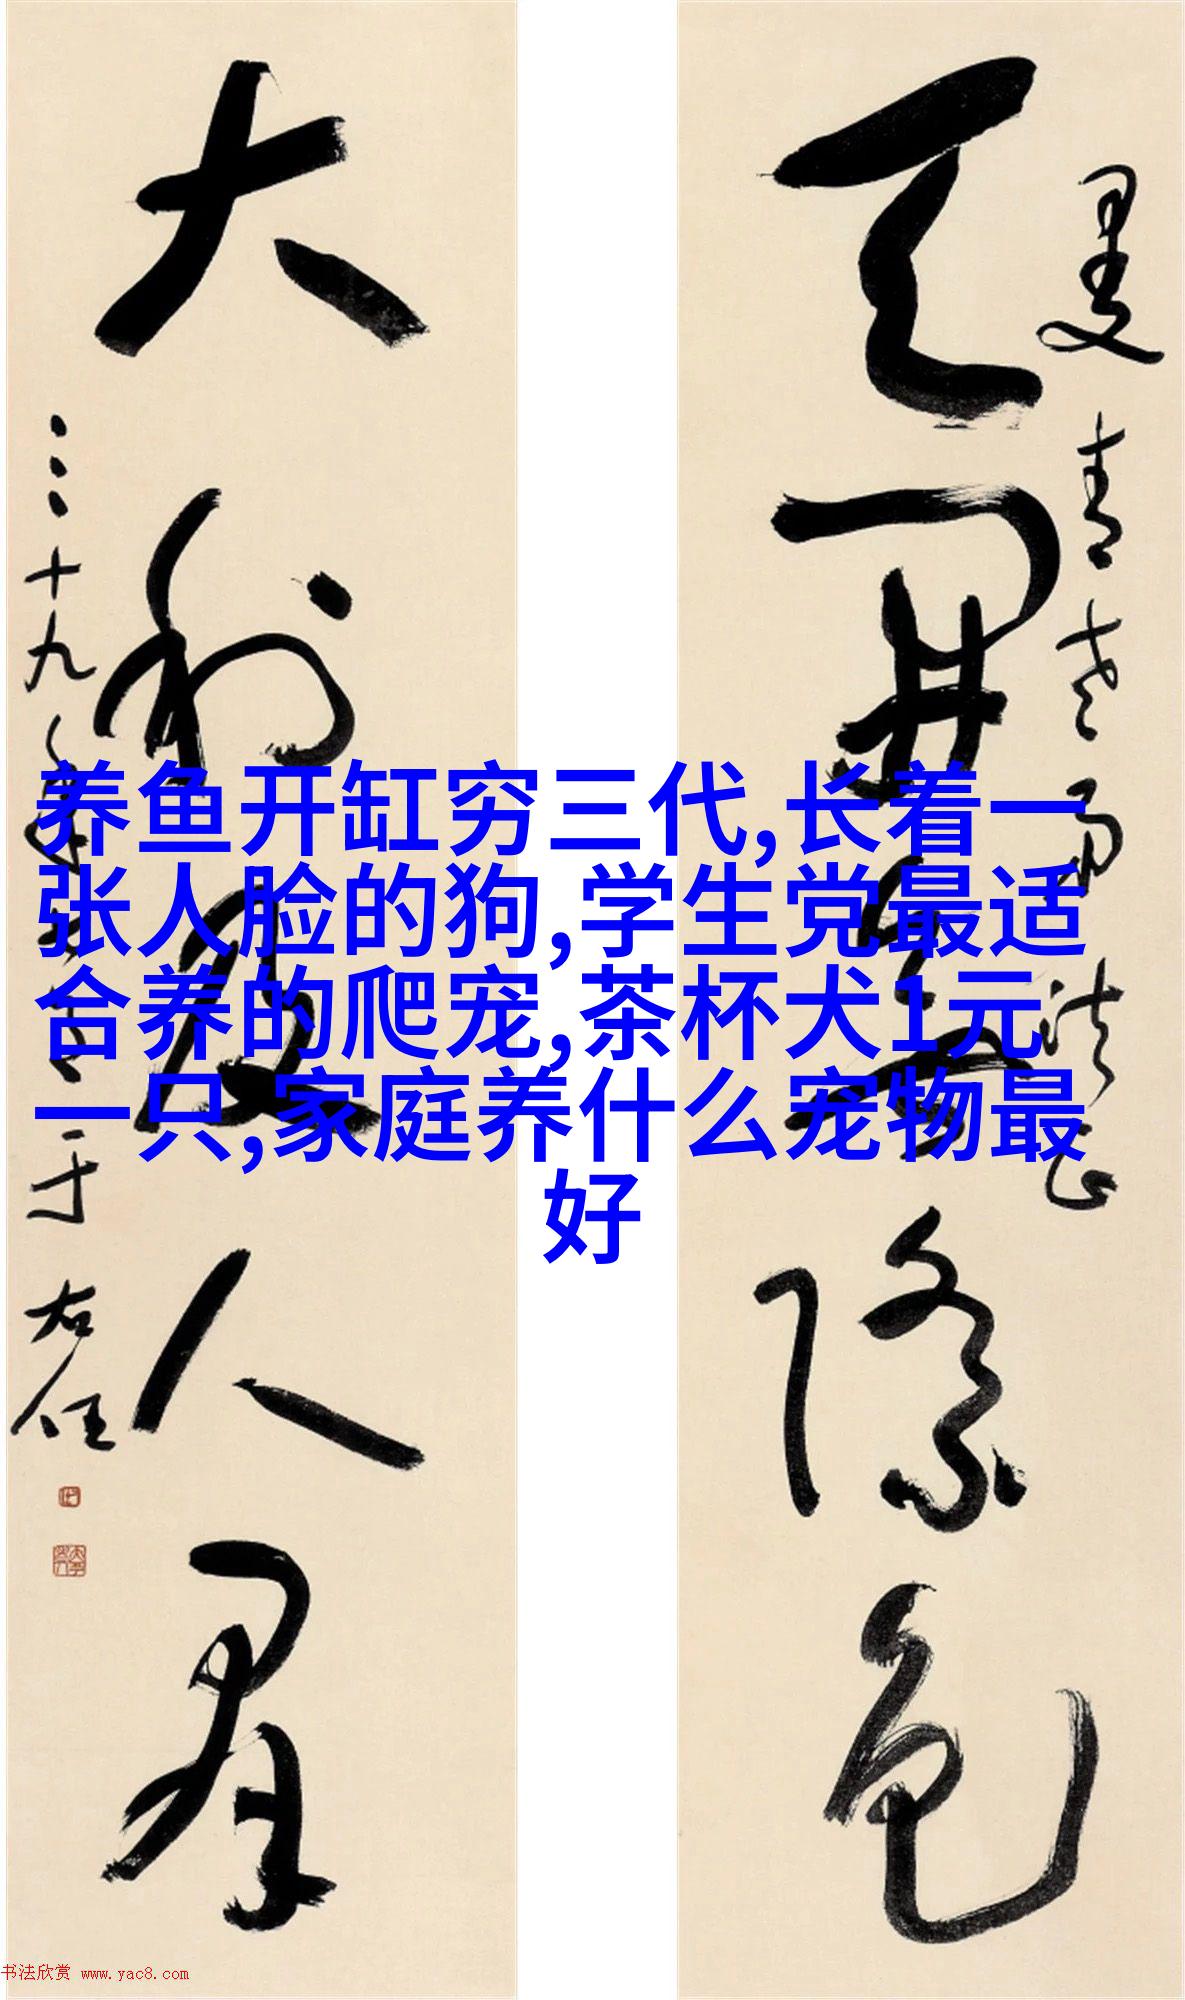 天開
際色
曼青
法正
大利及人羣
三十九年
于右任
养鱼开缸穷三代,长着一
张人脸的狗,学生党最适
合养的爬宠,茶杯犬1元
一只,家庭养什么宠物最
好
书法欣赏 www.yac8.com